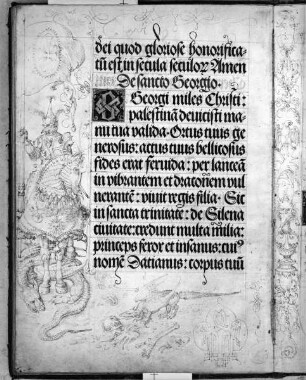 dei quod gloriose honorifica-
tū est in secula seculoꝝ Amen
De sancto Georgio.
Georgi miles Christi:
palestinā deuicisti ma-
nu tua valida. Ortus tuus ge
nerosus: actus tuus bellicosus
fides erat feruida: per lanceā
in vibrantem et draconem vul
nerantē: viuit regis filia. Sic
in sancta trinitate: de Silena
ciuitate: credunt multa milia:
princeps ferox et insanus: cuiꝰ
nomē Datianus: corpus tuū